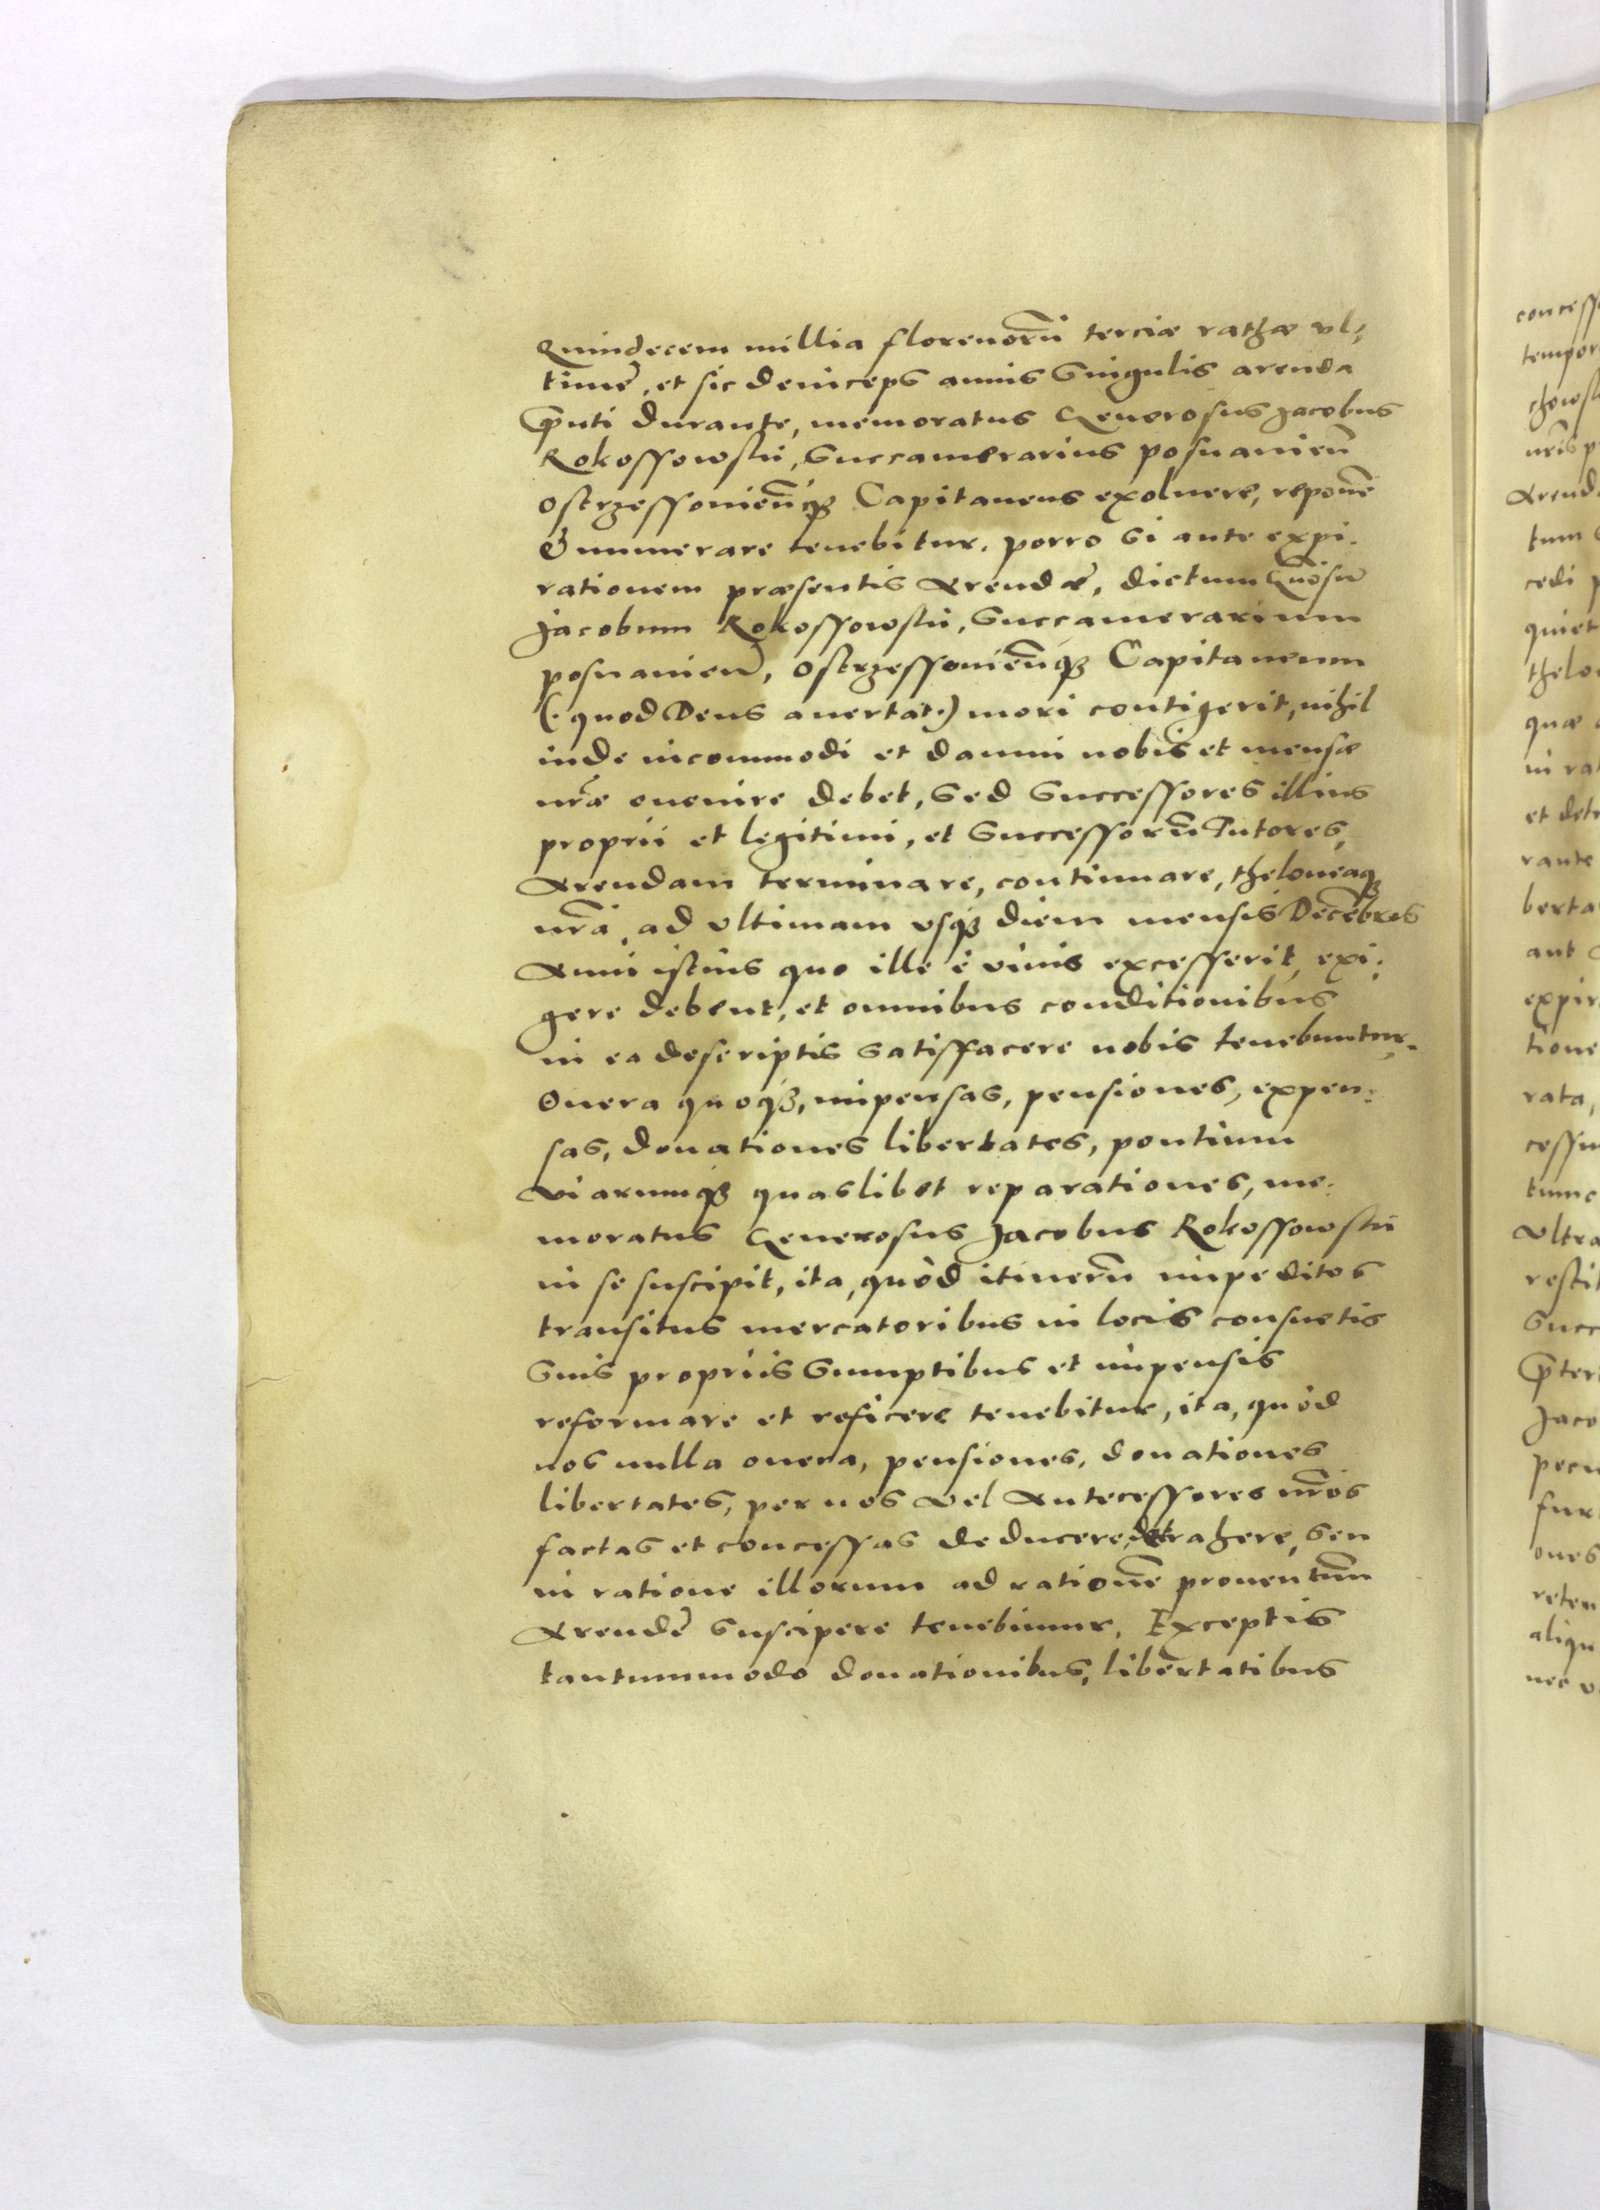 Quindecem millia florenorū terciæ rathæ vl,
timę, et sic deinceps annis singulis arenda
p̄nti durante, memoratus Generosus Jacobus
Rokossowskii, Succamerarius posnanien̄
ostrzessonien̄q₃ Capitaneus exoluere, repon̄e
& numerare tenebitur. porro si ante expi.
rationem præsentis Arendæ, dictum Gn̄osū
Jacobum Rokossowskii, Succamerarium
posnanien̄, ostrzessonien̄q₃ Capitaneum
(. quod Deus auertat.) mori contigerit, nihil
inde incommodi et damni nobis et mensæ
nr̄æ euenire debet, sed Successores illius
proprii et legitimi, et Successorū Tutores,
Arendam terminare, continuare, theloneaq₃
nr̄a, ad vltimam vsq₃ diem mensis Decēbris
Anni istius quo ille è viuis excesserit, exi:
gere debent, et omnibus conditionibus
in ea descriptis satisfacere nobis tenebuntur.
Onera quoq₃, impensas, pensiones, expen:
sas, donationes libertates, pontium
viarumq₃ quaslibet reparationes, me:
moratus Generosus Jacobus Rokossowskii
in se suscipit, ita, quòd itinerū impeditos
transitus mercatoribus in locis consuetis
suis propriis sumptibus et impensis
reformare et reficere tenebitur, ita, quòd
nos nulla onera, pensiones, donationes
libertates, per nos vel Antecessores nr̄os
factas et concessas deducere, detrahere, seu
in ratione illorum ad ration̄e prouentuū
Arendę suscipere tenebimur, Exceptis
tantummodo donationibus, libertatibus
concess
tempor
chowsk
nr̄is p
Arend
tum
cedi p
quiet
thelo
quæ
in rat
et detr
rante
berta
aut
expir
tione
rata,
cessu
tunc
vltra
restit
Succ
p̄ter
Jaco
pecu
fur
ones
reten
aliqu
nec v